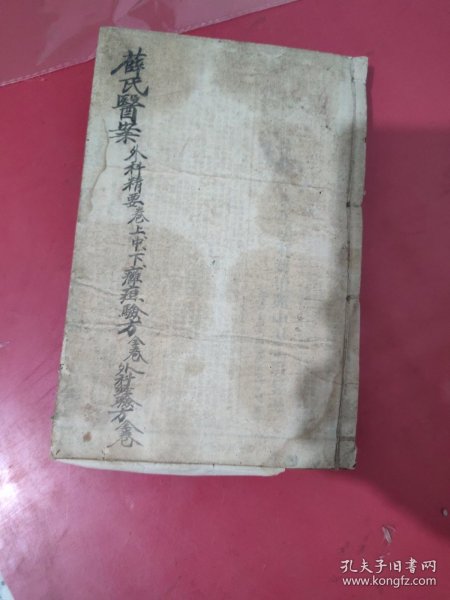 薛氏醫案外科精要卷上中下癰疽驗方全卷外科經驗方全卷
孔夫子旧书网
www.kongfz.com